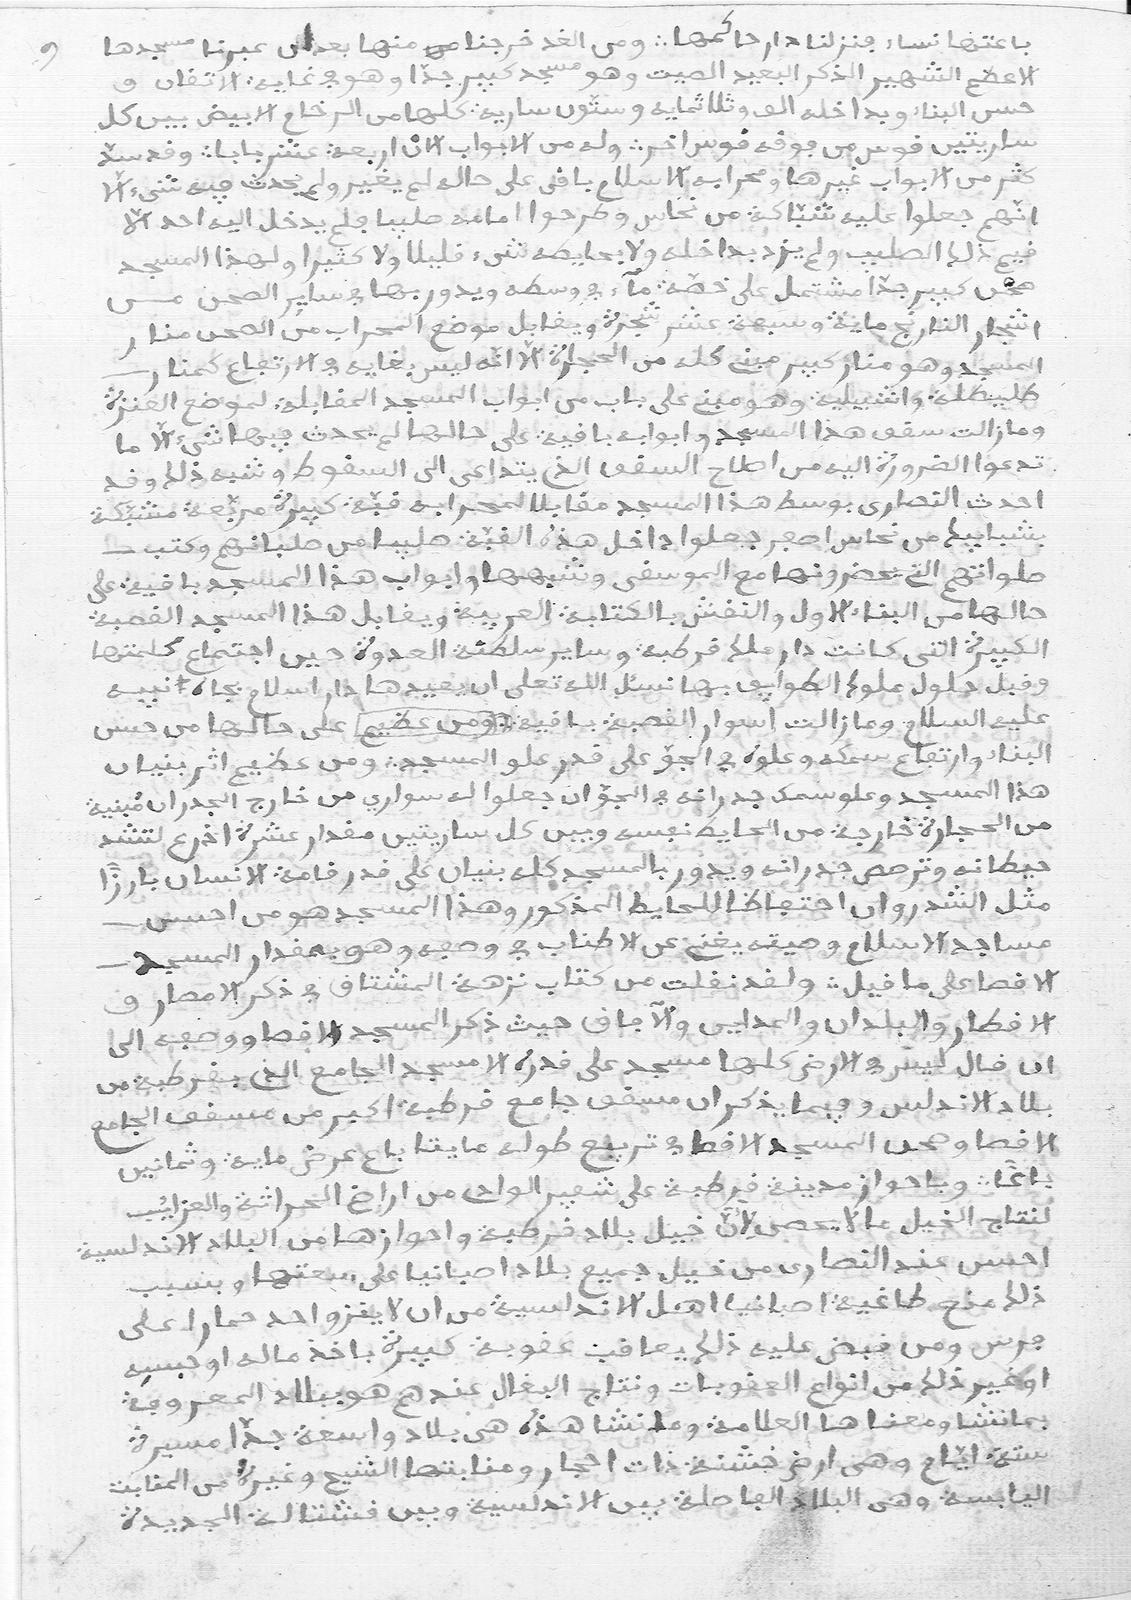 باعتنها نساء فنزلنا دار حاكمها ∴ ومن الغد خرجنا من منها بعد ان عبرنا مسجدها
الاعظم الشهير الذكر البعيد الصيت وهو مسجد كبير جدّا وهو في غاية الاتقان و
حسن البناء وبداخله الف وثلاثمايه وستّون سارية كلها من الرخام الابيض بين كل
ساريتين قوس من فوقه قوس اخر ∴ وله من الابواب الان اربعة عشر بابا ∴ وقد سدّ
كثر من الابواب غيرها ومحرابه الاسلام باقى على حاله لم يغير ولم يحدث فيه شىء الّا
انّهم جعلوا عليه شبّاكة من نحاس وطرحوا امامه صليبا فلم يدخل اليه احد الّا
قيم ذلك الصليب ولم يزد بداخله ولا بحايطه شىء قليلا ولا كثيرا ولهذا المسجد
صحن كبير جدّا مشتمل على خصّة ماء في وسطه ويدور بها في ساير الصحن من
اشجار النارنج ماية وسبعة عشر شجرة ويقابل موضع المحراب من الصحن منار
المسجد وهو منار كبير مبنى كله من الحجارة الّا انّه ليس بغايه في الارتفاع كمنار
طليطلة واشبيلية وهو مبنى على باب من ابواب المسجد المقابلة لموضع العنزة
ومازالت سقف هذا المسجد وابوابه باقية على حالها لم يحدث فيها شىء الّا ما
تدعوا الضرورة اليه من اصلاح السقف الذى يتداعى الى السقوط وشبه ذلك وقد
احدث النصارى بوسط هذا المسجد مقابلا لمحرابه قبّة كبيرة مربّعة مشبّكة
بشبابيك من نحاس اصفر جعلوا داخل هذه القبّة صليبا من صلبانهم وكتب
صلواتهم التى يحضرونها مع الموسقى وشبهها وابواب هذا المسجد باقية على
حالها من البناء الاول والنقش بالكتابة العربية ويقابل هذا المسجد القصبة
الكبيرة التى كانت دار ملك قرطبة وساير سلطنة العدوة حين اجتماع كلمتها
وقبل حلول ملوك الطوايف بها نسئل الله تعلى ان يعيدها دار اسلام بجاه نبيه
عليه السلام ومازالت اسوار القصبة باقية ومن عظيم على حالها من حسن
البناء وارتفاع سمكه وعلوه في الجوّ على قدر علو المسجد ∴ ومن عظيم اثر بنيان
هذا المسجد وعلو سمك جدرانه في الجوّ ان جعلوا له سواري من خارج الجدران مبنية
من الحجارة خارجة من الحايط نفسه وبين كل ساريتين مقدار عشرة اذرع لتشد
حيطانه وترصص جدرانه ويدور بالمسجد كله بنيان على قدر قامة الانسان بارزًا
مثل الشدروان احتفاظا للحايط المذكور وهذا المسجد هو من احسن
مساجد الاسلام وصيته يغنى عن الاطناب في وصفه وهو بمقدار المسجد
الاقصا على ما قيل ∴ ولقد نقلت من كتاب نزهة المشتاق في ذكر الامصار و
الاقطار والبلدان والمداين والآفاق حيث ذكر المسجد الاقصا ووصفه الى
ان قال ليس في الارض كلها مسجد على قدره الا مسجد الجامع الذى بقرطبة من
بلاد الاندلس وفيما يذكر ان مسقف جامع قرطبة اكبر من مسقف الجامع
الاقصا وصحن المسجد الاقصا في تربيع طوله مايتا باع عرض ماية وثمانين
باعًا ∴ وباحواز مدينة قرطبة على شفير الواد من اراض الحراثة والعزائب
لنتاج الخيل ما لا يحصى لانّ خيل بلاد قرطبة واحوازها من البلاد الاندلسية
احسن عند النصارى من خيل جميع بلاد اصبانيا على سعتها وبسبب
ذلك منع طاغية اصبانيا اهل الاندلسية من ان لا يفزوا احد حمارا على
فرس ومن قبض عليه ذلك يعاقب عقوبة كبيرة باخذ ماله او حبسه
او غير ذلك من انواع العقوبات ونتاج البغال عندهم هو ببلاد المعروفة
بمانشا ومعناها العلامة ومانشا هذه هى بلاد واسعة جدّا مسيرة
ستة ايّام وهى ارض خشنة ذات احجار ومنابتها الشيح وغيره من المنابت
اليابسة وهى البلاد الفاصلة بين الاندلسية وبين قشتالة الجديدة